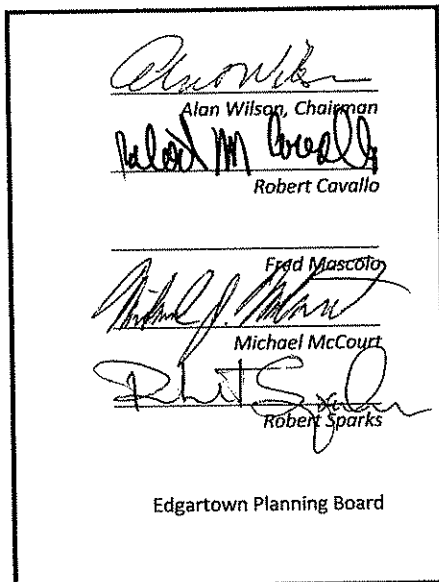 Alan Wilson
Alan Wilson, Chairman
Robert M Cavallo
Robert Cavallo
Fred Mascolo
Michael J. McCourt
Michael McCourt
Robert Sparks
Robert Sparks
Edgartown Planning Board